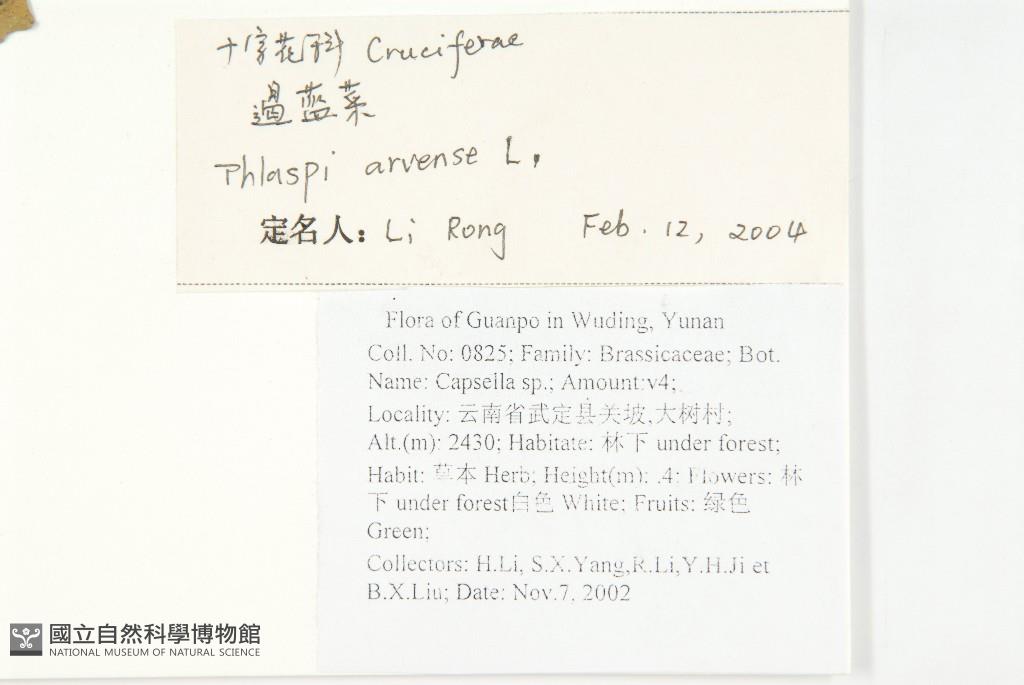 十字花科 Cruciferae
過蓝菜
Thlaspi arvense L.
定名人: Li Rong Feb. 12, 2004
Flora of Guanpo in Wuding, Yunan
Coll. No: 0825; Family: Brassicaceae; Bot.
Name: Capsella sp.; Amount:v4;
Locality: 云南省武定县关坡,大树村;
Alt.(m): 2430; Habitate: 林下 under forest;
Habit: 草本 Herb; Height(m): .4: Flowers: 林
下 under forest白色 White; Fruits: 绿色
Green;
Collectors: H.Li, S.X.Yang,R.Li,Y.H.Ji et
B.X.Liu; Date: Nov.7, 2002
國立自然科學博物館
NATIONAL MUSEUM OF NATURAL SCIENCE